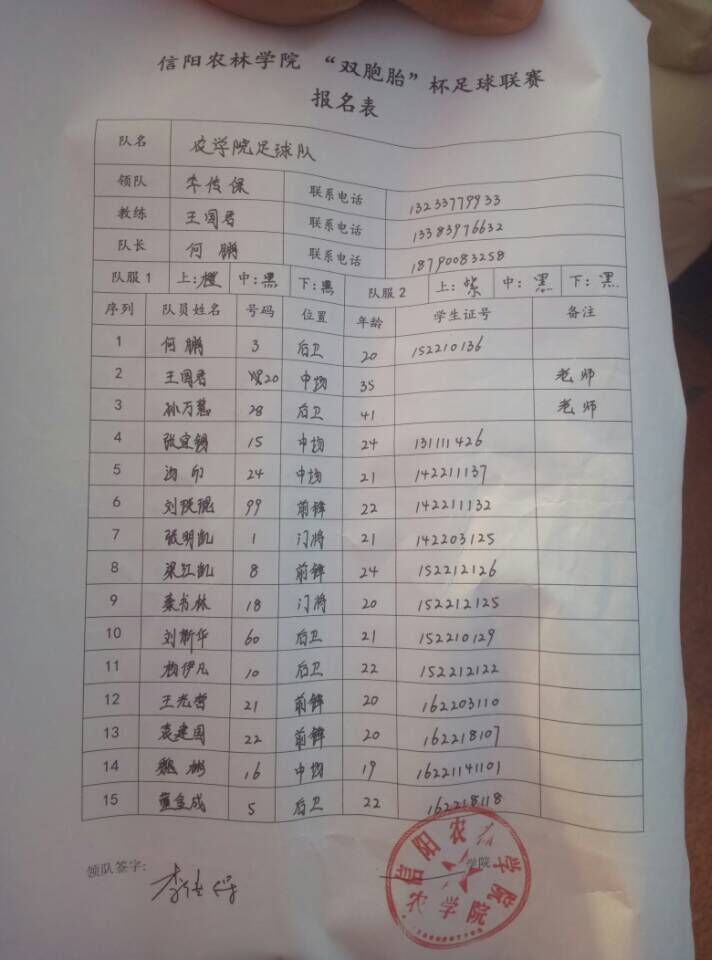 信阳农林学院 “双胞胎”杯足球联赛
报名表
队名 农学院足球队
领队 李传保 联系电话 13233779933
教练 王国君 联系电话 13383976632
队长 何鹏 联系电话 18790083258
队服1 上:橙 中:黑 下:黑 队服2 上:紫 中:黑 下:黑
序列 队员姓名 号码 位置 年龄 学生证号 备注
1 何鹏 3 后卫 20 152210136
2 王国君 20 中场 35 老师
3 孙万慧 28 后卫 41 老师
4 张宜锡 15 中场 24 131111426
5 24 中场 21 142211137
6 刘 99 前锋 22 142211132
7 张明凯 1 门将 21 142203125
8 梁江凯 8 前锋 24 152212126
9 秦书林 18 门将 20 152212125
10 刘新华 60 后卫 21 152210129
11 杨伊凡 10 后卫 22 152212122
12 王光哲 21 前锋 20 162203110
13 袁建国 22 前锋 20 162218107
14 魏彬 16 中场 19 16221141101
15 董金成 5 后卫 22 162218118
领队签字: 李传保 学院
信阳农林学院
农学院